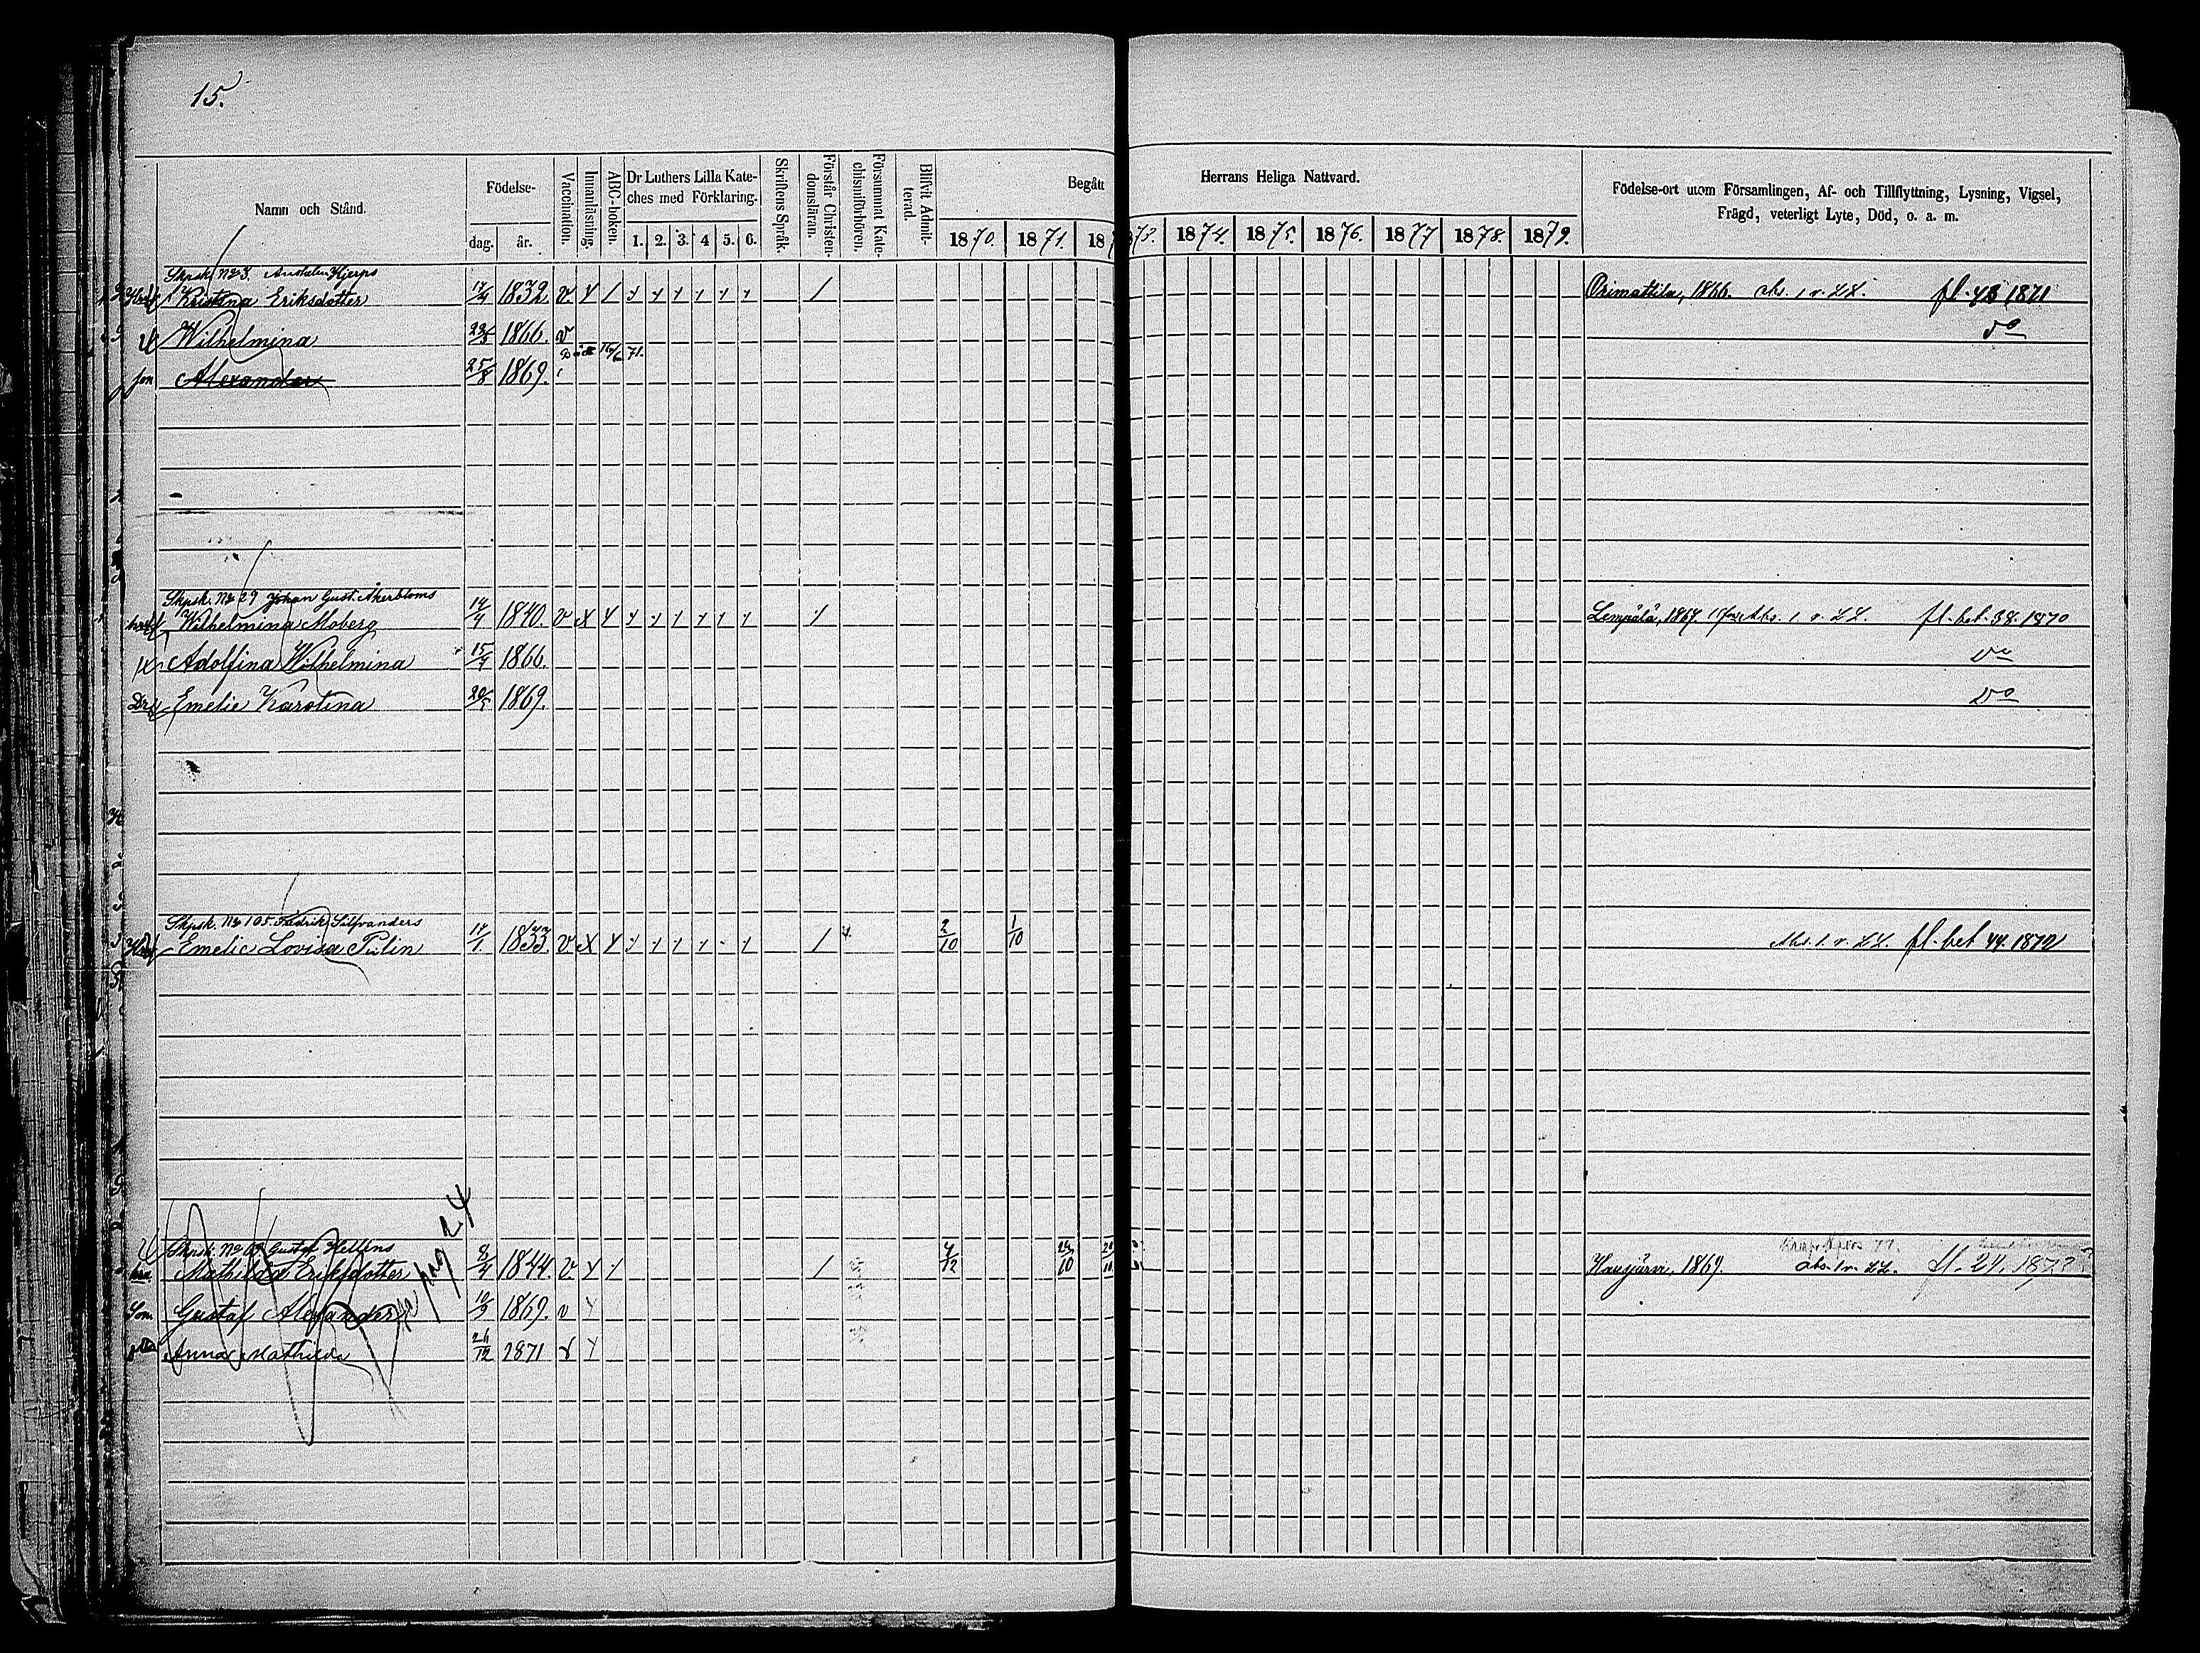 15.
Namn och Stånd.
Födelse-
dag. år.
Vaccination.
Innanläsning.
ABC-boken.
Dr Luthers Lilla Kate-
ches med Förklaring.
1. 2. 3. 4 5. 6.
Skriftens Språk.
Förstår Christen-
domsläran.
Försummat Kate-
chismiförhören.
Blifvit Admit-
terad.
Begått Herrans Heliga Nattvard.
1870. 1871. 18 73. 1874. 1875. 1876. 1877 1878. 1879.
Födelse-ort utom Församlingen, Af- och Tillflyttning, Lysning, Vigsel,
Frägd, veterligt Lyte, Död, o. a. m.
No 3. Hjerps
Kristina Eriksdotter 1832. v. Orimattila, 1866. abs. 1 v. LL. fl. 43 1871
Wilhelmina 1866. v do
Död 71.
son Alexander 25/8 1869.
Skpsk. No 29 Johan Gust. Åkerbloms
Wilhelmina Moberg 14/4 1840. v Lempälä, 1867. Abs. 1 v. LL. fl. bet. 38. 1870
Adolfina Wilhelmina 15/4 1866. do
Emelie Karolina 1869. do
Skpsk. No 105. Fredrik Silfvanders
Emelie Lovisa Tulin 14/1 1833. v 2/10 1/10 Abs. 1. v. LL. fl. bet 44. 1872
pag 24
Skpsk. No Gustaf Helléns
Mathilda Eriksdotter 8/4 1844. v. 4/12 Hausjärvi, 1869. abs. 1 v. LL. fl. 24. 1873
Son Gustaf Alexander 10/9 1869. v
Anna Mathilda 26/12 1871 v